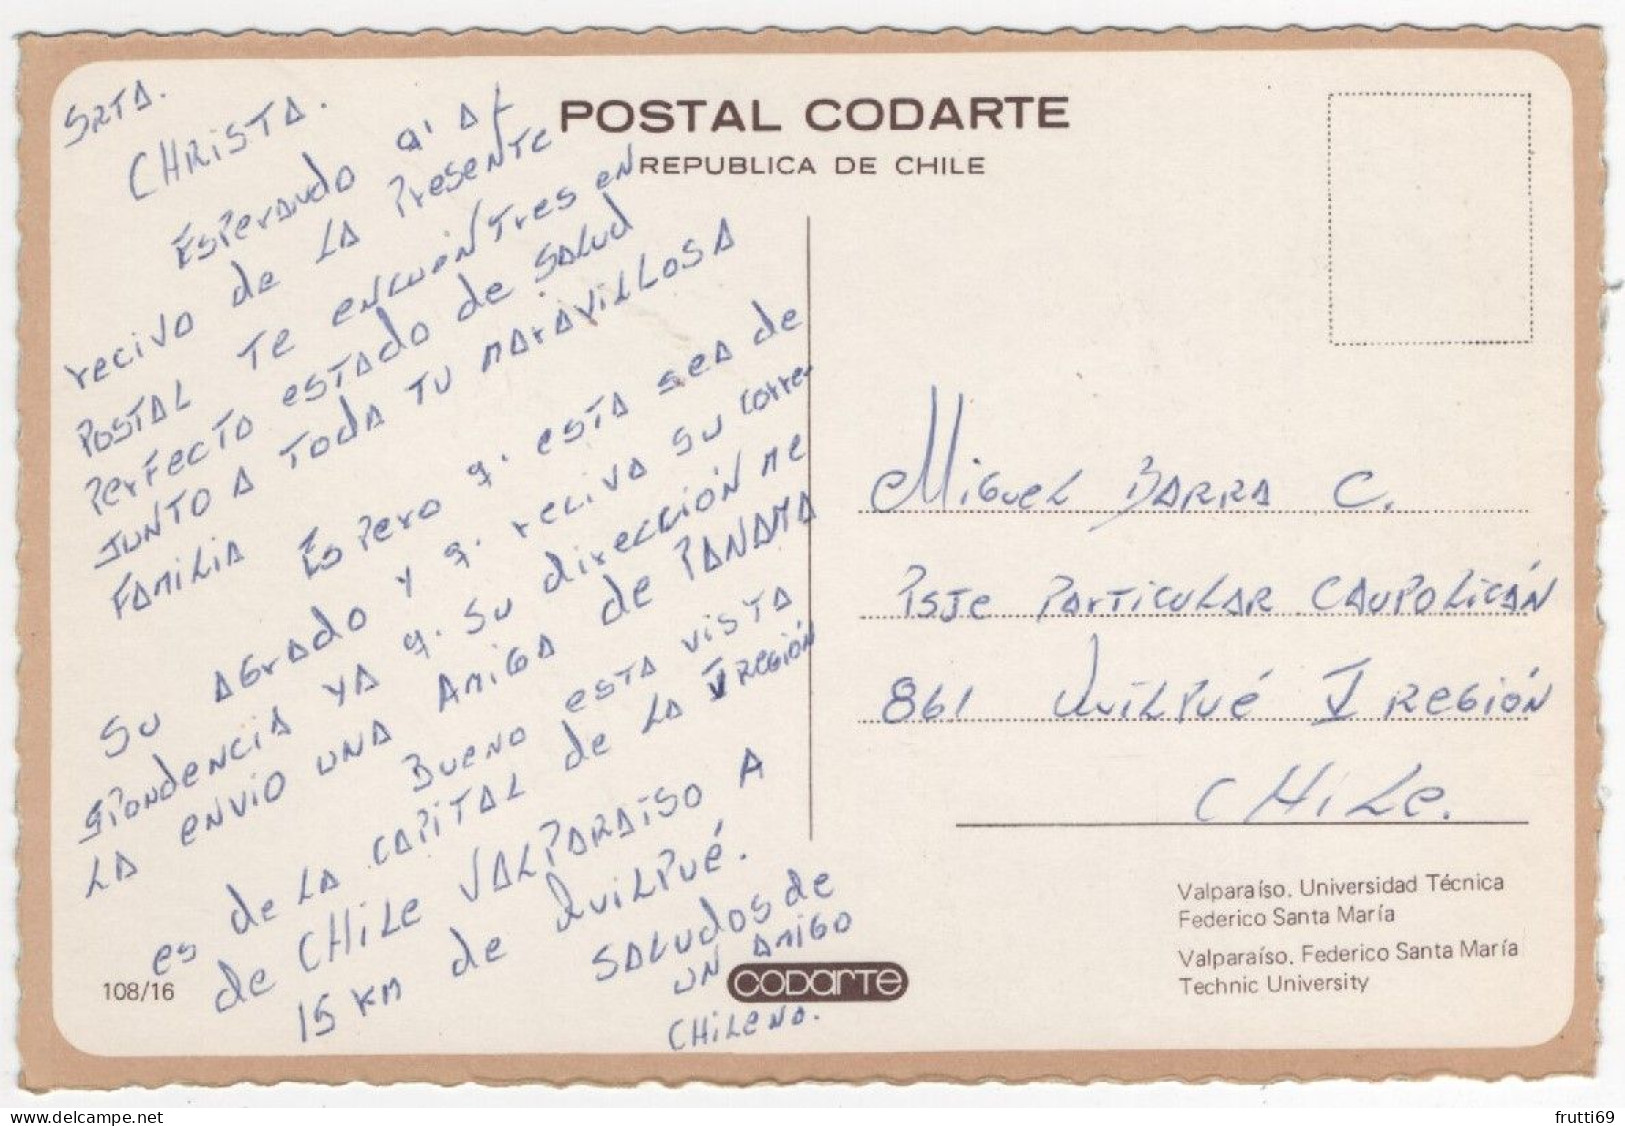 SRTA.
CHRISTA.
Esperando q' al
recivo de la presente
postal te encuentres en
perfecto estado de salud
junto a toda tu maravillosa
familia Espero q. esta sea de
su agrado y q. reciva su corre-
spondencia ya q. su dirección me
la envio una amiga de PANAMA
Bueno esta vista
es de la capital de la V región
de CHILE VALPARAISO A
15 KM de Quilpué.
Saludos de
un amigo
CHILENO.
108/16
POSTAL CODARTE
REPUBLICA DE CHILE
Miguel BARRA C.
Psje Particular CAUPOLICÁN
861 Quilpué V REGIÓN
CHILE.
Valparaíso. Universidad Técnica
Federico Santa María
Valparaíso. Federico Santa María
Technic University
CODARTE
frutti69
www.delcampe.net